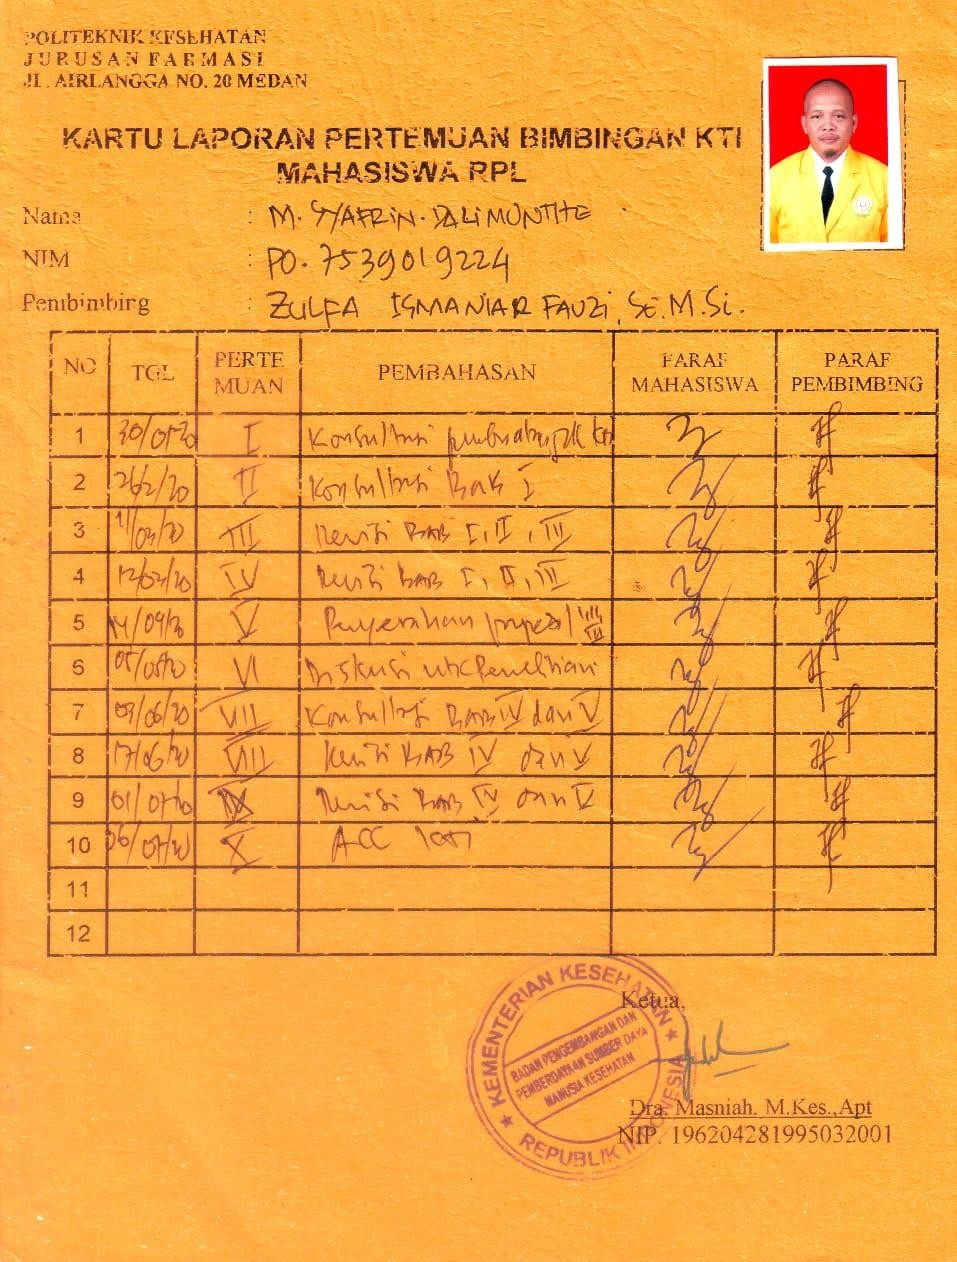 POLITEKNIK KESEHATAN
JURUSAN FARMASI
JL. AIRLANGGA NO. 20 MEDAN
KARTU LAPORAN PERTEMUAN BIMBINGAN KTI
MAHASISWA RPL
Nama : M. SYAFRIN. DALIMUNTHE
NIM : PO. 7539019224
Pembimbing : ZULFA ISMANIAR FAUZI, SE. M.Si.
NO TGL PERTE MUAN PEMBAHASAN PARAF MAHASISWA PARAF PEMBIMBING
1 30/01-20 I Konsultasi KTI
2 26/2/20 II Konsultasi Bab I
3 11/03/20 III Revisi BAB I, II, III
4 12/03/20 IV Revisi BAB I, II, III
5 14/04/20 V Penyerahan proposal
6 05/05/20 VI Diskusi utk Penelitian
7 03/06/20 VII Konsultasi BAB IV dan V
8 17/06/20 VIII Revisi BAB IV dan V
9 01/07/20 IX Revisi BAB IV dan V
10 06/07/20 X ACC KTI
11
12
KEMENTERIAN KESEHATAN
BADAN PENGEMBANGAN DAN
PEMBERDAYAAN SUMBER DAYA
MANUSIA KESEHATAN
REPUBLIK INDONESIA
Ketua,
Dra. Masniah, M.Kes.,Apt
NIP. 196204281995032001